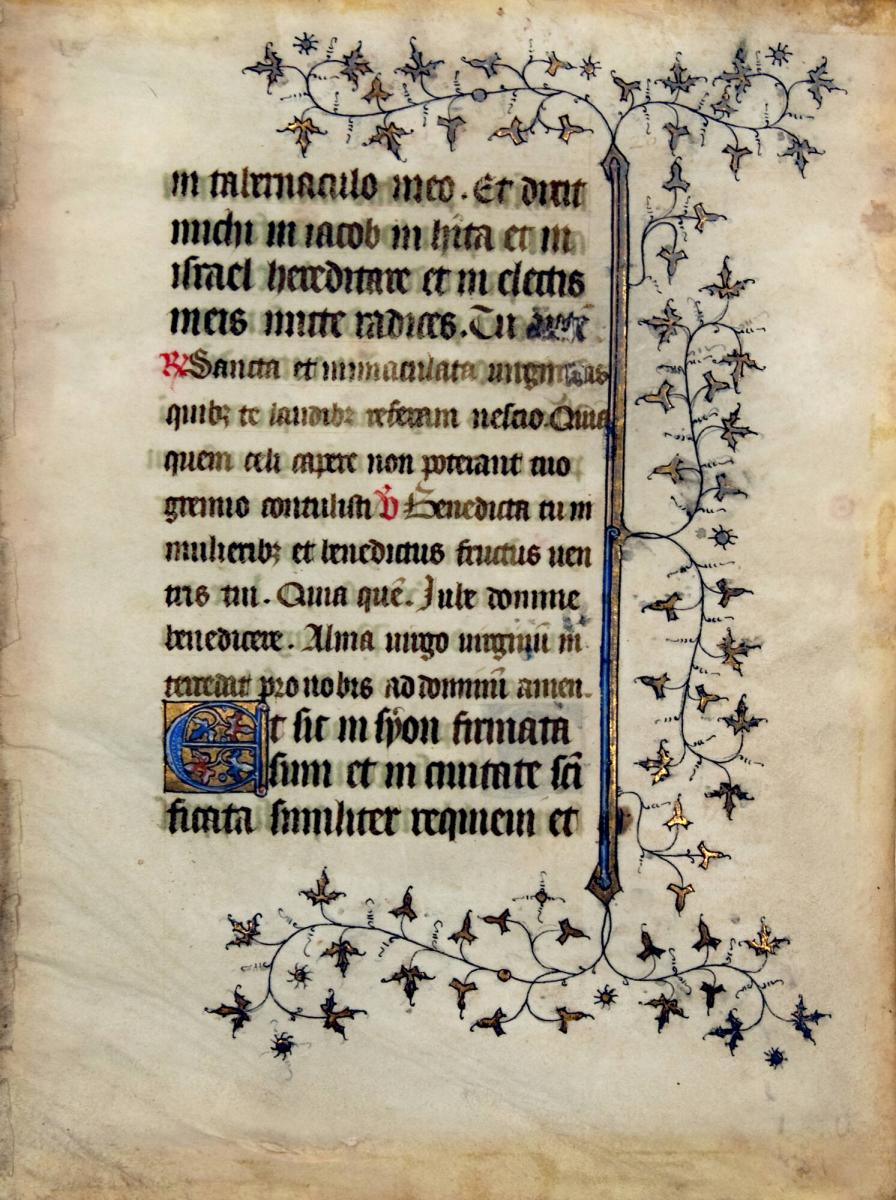 in tabernaculo meo. Et dixit
michi in iacob in hita et in
israel hereditare et in electis
meis mitte radices. Tu
R Sancta et immaculata virginitas
quibꝫ te laudibꝫ referam nescio. Quia
quem celi capere non poterant tuo
gremio contulisti V Benedicta tu in
mulieribꝫ et benedictus fructus uen
tris tui. Quia quē. Jube domine
benedicere. Alma uirgo uirginū in
tercedat pro nobis ad dominū amen.
Et sic in syon firmata
sum et in ciuitate scī
ficata similiter requieui et